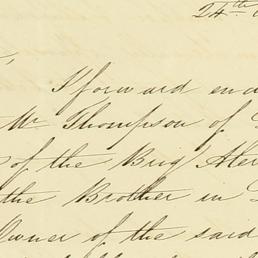 24th
I forward en
Mr Thompson of
of the Brig Aler
the Brother in
Owner of the said